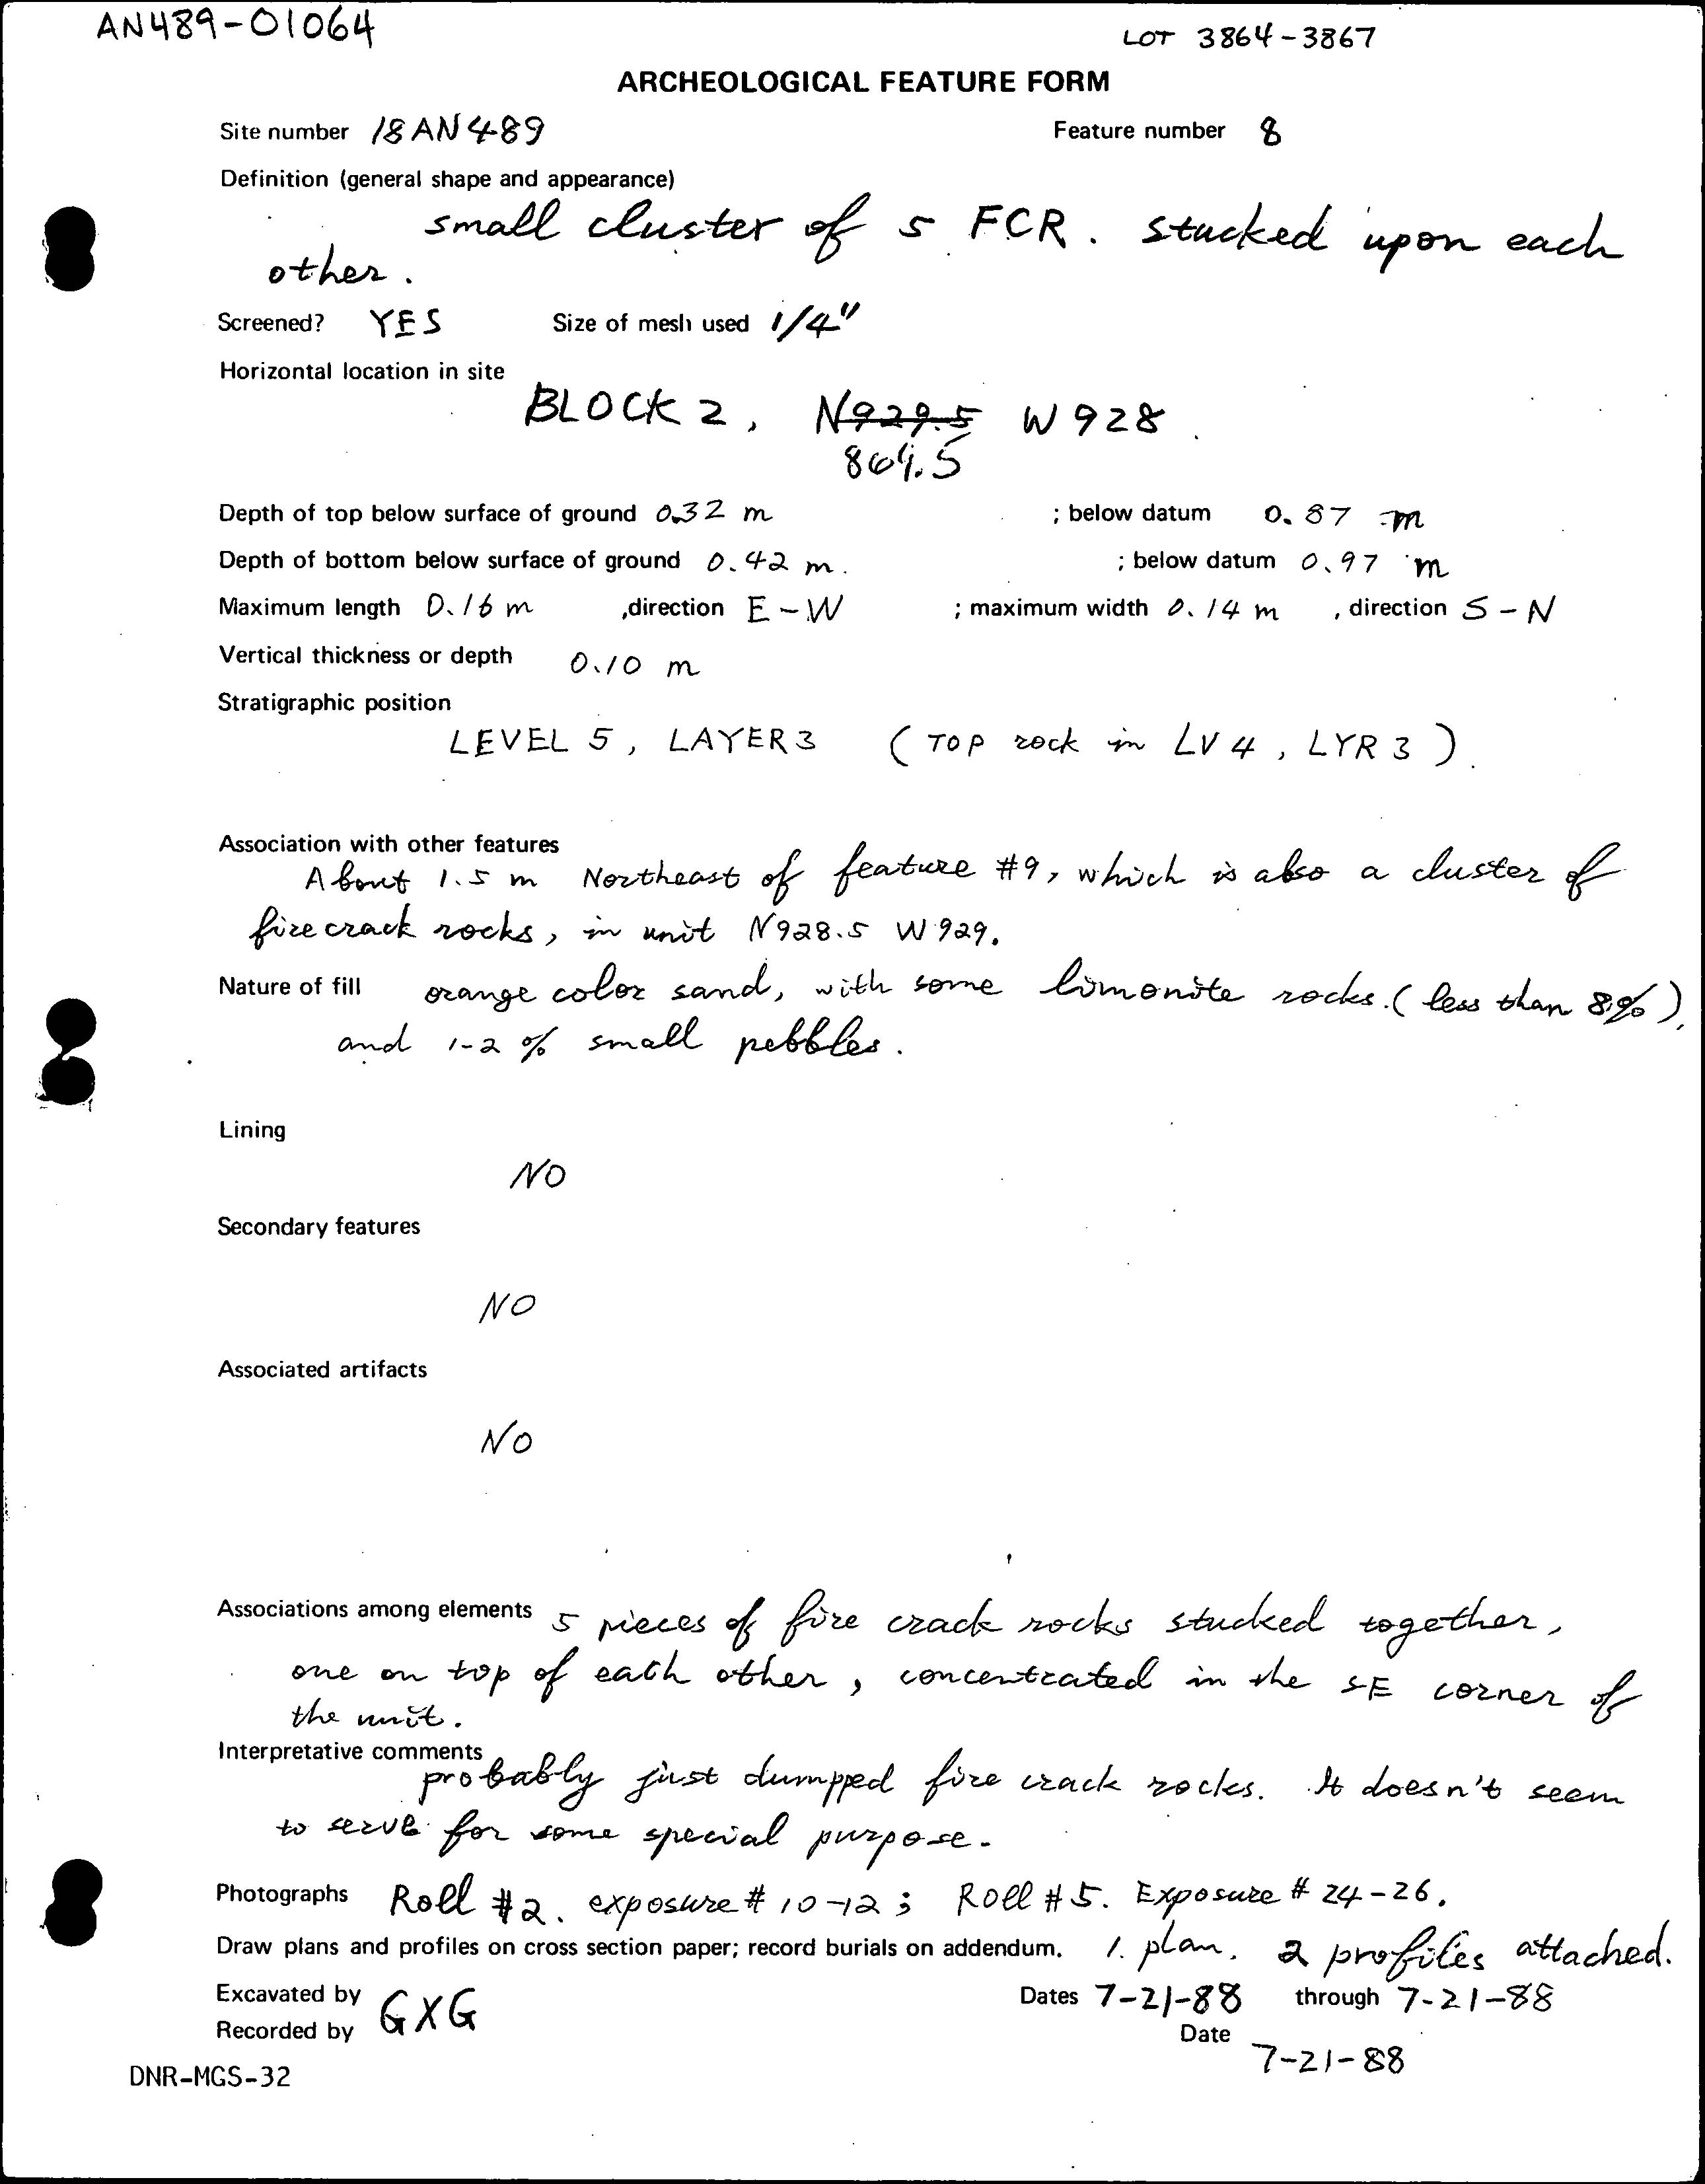 AN489-01064
LOT 3864-3867
ARCHEOLOGICAL FEATURE FORM
Site number 18AN489 Feature number 8
Definition (general shape and appearance)
small cluster of 5 FCR. stacked upon each
other.
Screened? YES Size of mesh used 1/4"
Horizontal location in site
BLOCK 2, N929.5 W928.
864.5
Depth of top below surface of ground 0.32 m ; below datum 0.87 m
Depth of bottom below surface of ground 0.42 m. ; below datum 0.97 m
Maximum length 0.16 m ,direction E-W ; maximum width 0.14 m , direction S-N
Vertical thickness or depth 0.10 m
Stratigraphic position
LEVEL 5, LAYER 3 (TOP rock in LV 4, LYR 3).
Association with other features
About 1.5 m Northeast of feature #9, which is also a cluster of
fire crack rocks, in unit N928.5 W929.
Nature of fill orange color sand, with some limonite rocks. (less than 8%),
and 1-2 % small pebbles.
Lining
NO
Secondary features
NO
Associated artifacts
NO
Associations among elements 5 pieces of fire crack rocks stucked together,
one on top of each other, concentrated in the SE corner of
the unit.
Interpretative comments
probably just dumpped fire crack rocks. It doesn't seem
to serve for some special purpose.
Photographs Roll #2. exposure # 10-12; Roll #5. Exposure # 24-26.
Draw plans and profiles on cross section paper; record burials on addendum. 1. plan. 2 profiles attached.
Excavated by GXG Dates 7-21-88 through 7-21-88
Recorded by Date 7-21-88
DNR-MGS-32